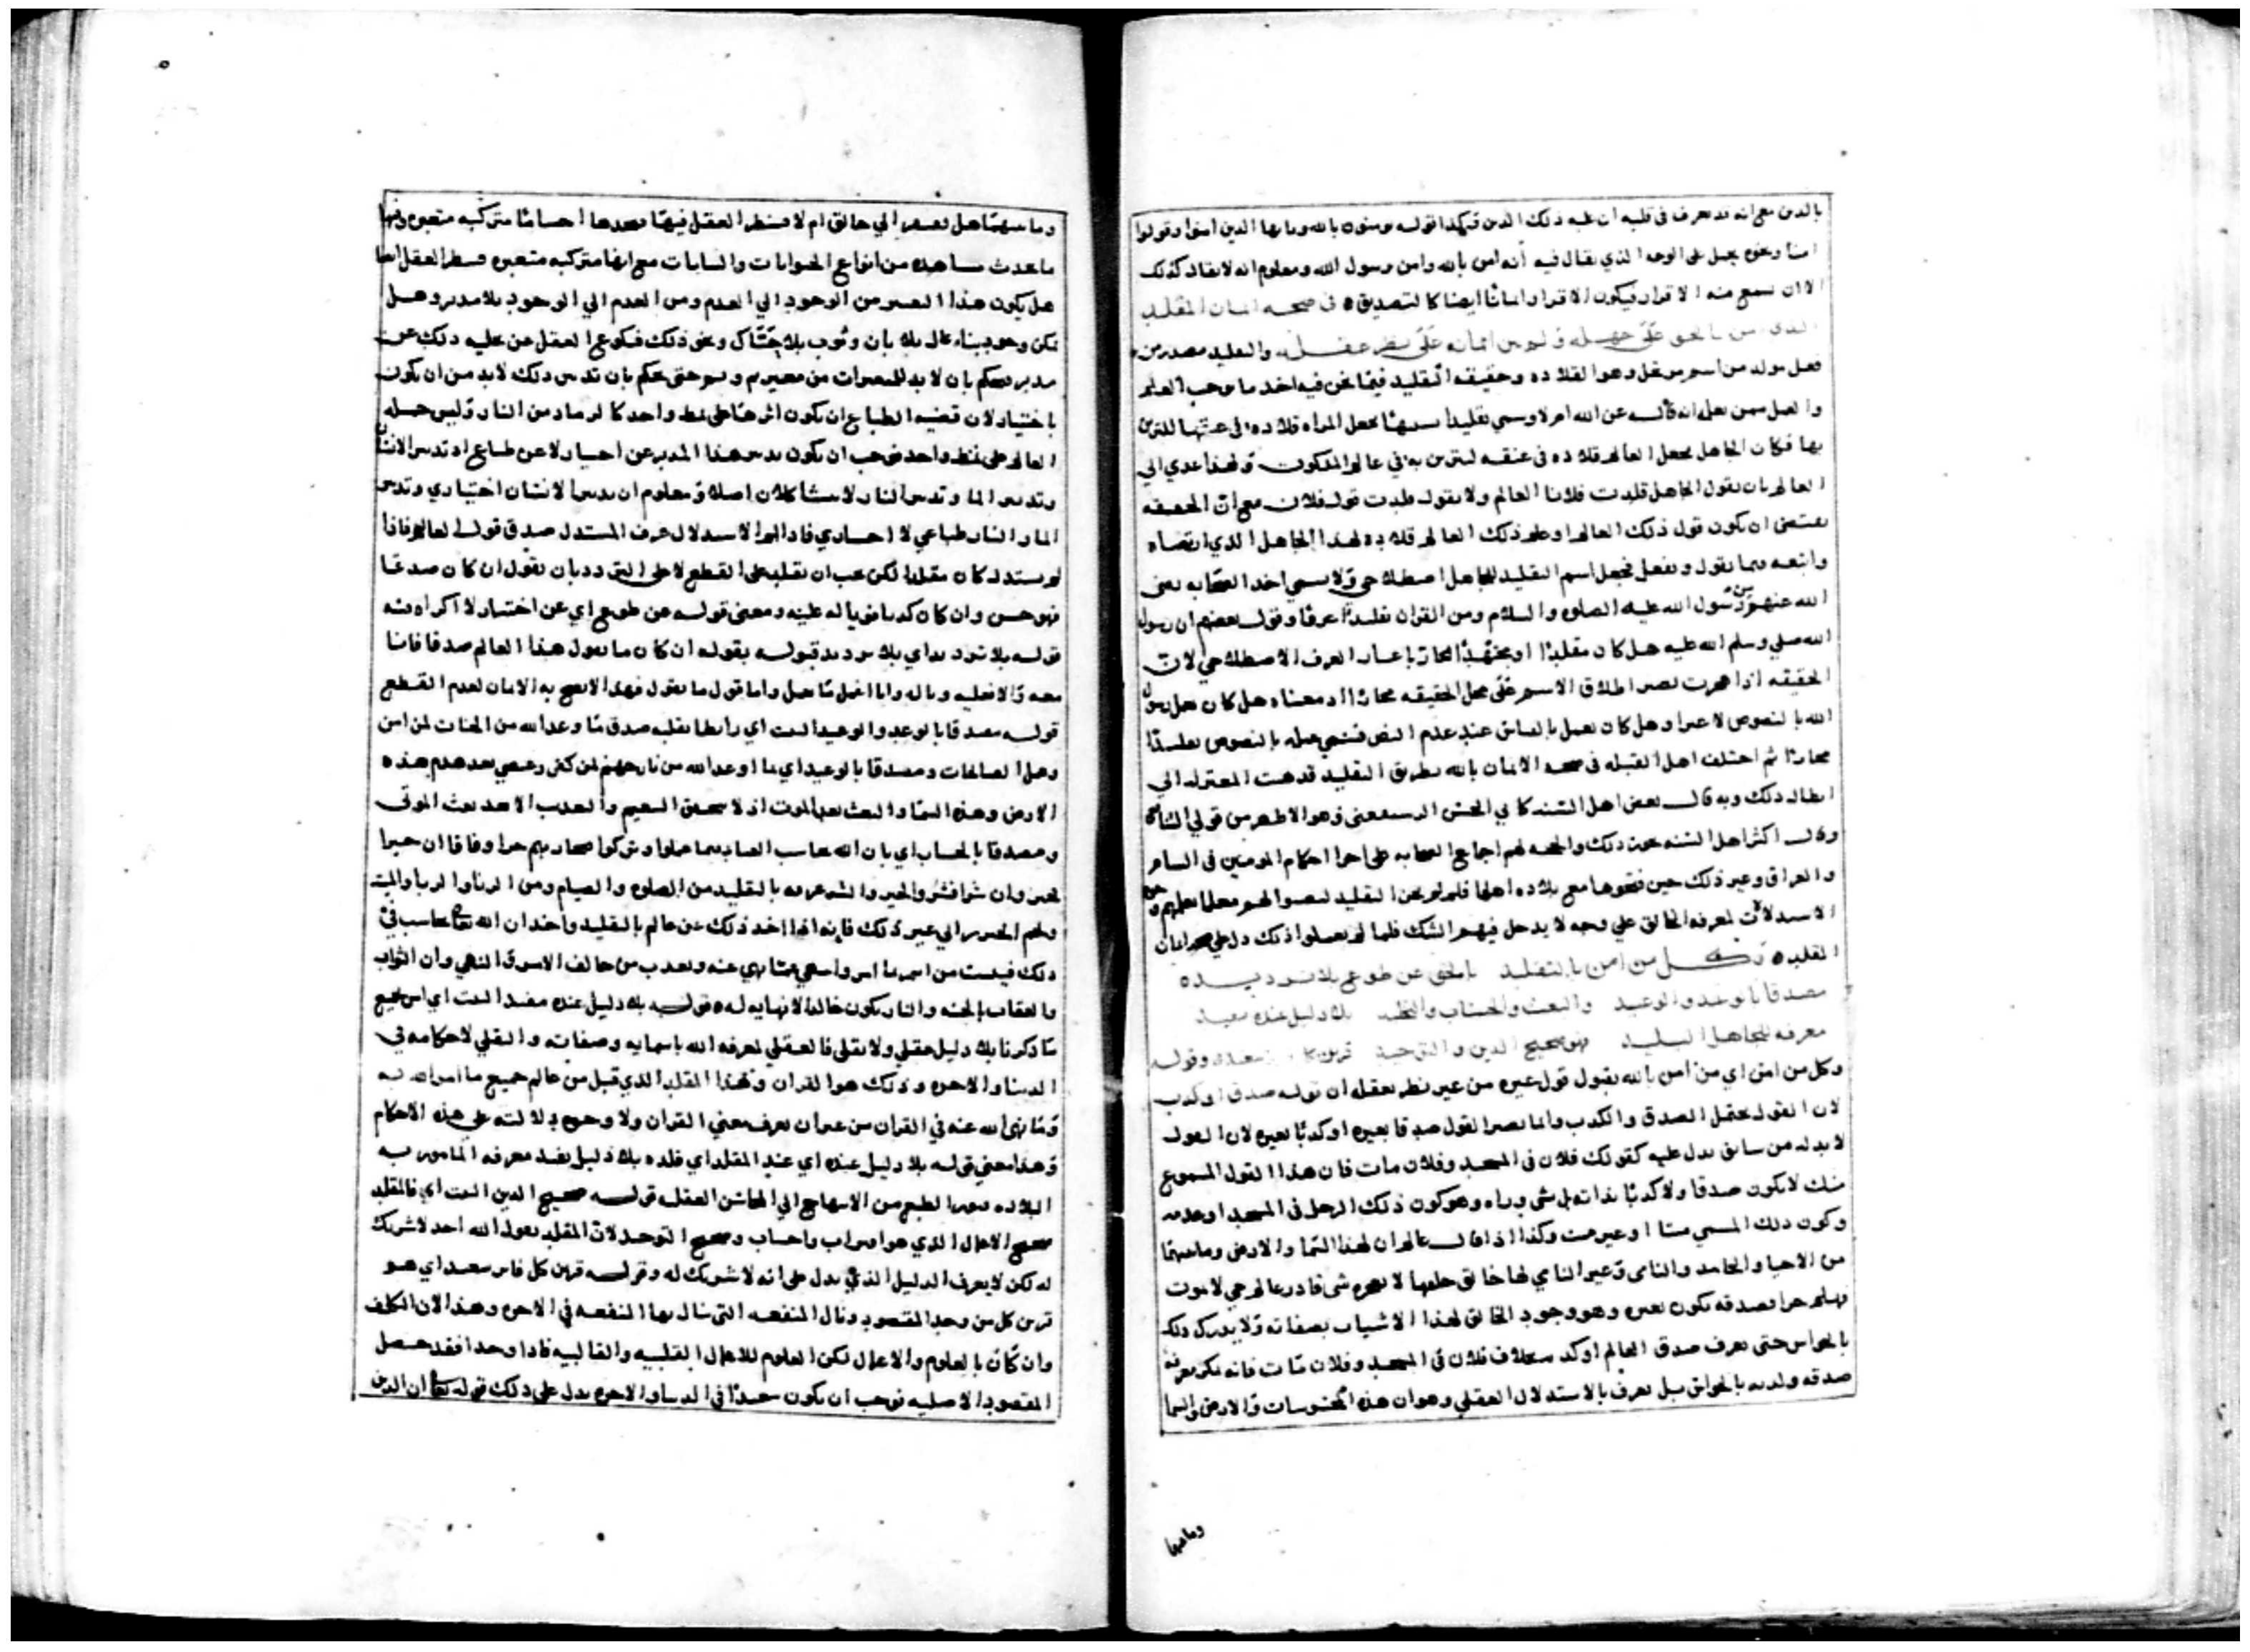 بالدين مع انه قد يعرف في قلبه ان عليه ذلك الدين وكهذا قوله يومنون بالله ويا ايها الذين امنوا وقولوا
امنا ونحوه يحمل على الوجه الذي يقال فيه انه امن بالله وامن رسول الله ومعلوم انه لا يقال كذلك
الا ان يسمع منه الاقرار فيكون الاقرار ايمانا ايضا كالتصديق في صحة ايمان المقلد
الذي امن بالحق على جهله وليس ايمانه على نظر عقله والتقليد مصدر من
فعل مولد من اسم من عقل وهو القلاده وحقيقه التقليد فيما نحن فيه اخذ ما يوجب العلم
والعمل ممن يعلم انه قاله عن الله امر لا وسمي تقليدا تشبيها بجعل المراه قلاده في عنقها للتزين
بها فكان الجاهل يجعل العالم قلاده في عنقه ليتزين به في عالم الملكوت ولهذا عدي الى
العالم بان يقول الجاهل قلدت فلانا العالم ولا يقول قلدت قول فلان مع ان الحقيقه
يقتضي ان يكون قول ذلك العالم او علم ذلك العالم قلاده لهذا الجاهل الذي ارتضاه
واتبعه فيما يقول ويفعل فجعل اسم التقليد للجاهل اصطلاحي ولا يسمى اخذ الصحابه رضي
الله عنهم من رسول الله عليه الصلوه والسلام ومن القران تقليدا عرفا وقول بعضهم ان رسول
الله صلي وسلم الله عليه هل كان مقلدا او مجتهدا مجاز باعتبار العرف الاصطلاحي لان
الحقيقه اذا هجرت يصير اطلاق الاسم على محل الحقيقه مجازا اذ معناه هل كان عمل رسول
الله بالنصوص لا غير او هل كان يعمل بالقياس عند عدم النص فسمي عمله بالنصوص تقليدا
مجازا ثم اختلف اهل القبله في صحة الايمان بالله بطريق التقليد فذهبت المعتزله الي
ابطال ذلك وبه قال بعض اهل السنه كابي الحسن الرستغفني وهو الاظهر من قولي
وقال اكثر اهل السنه يجوز ذلك والحجه لهم اجماع الصحابه على اجرا احكام المومنين في الشام
والعراق وغير ذلك حين فتحوها مع بلاده اهلها فلو لم يجز التقليد لنصبوا لهم معلما يعلمهم
الاستدلالات لمعرفه الخالق علي وجه لا يدخل فيهم الشك فلما لم يفعلوا ذلك دل على صحه ايمان
المقلد وكل من امن بالتقليد بالحق عن طوع بلا ترديده
مصدقا بالوعد والوعيد والبعث والحساب بلا دليل عنده مفيد
معرفه للجاهل البليد فهو صحيح الدين والتوحيد قرين سعد وقوله
وكل من امن اي من امن بالله بقول قول غيره من غير نظر بعقله ان قوله صدق او كذب
لان القول يحتمل الصدق والكذب وانما يصير القول صدقا بغيره او كذبا بغيره لان القول
لا بد له من سابق يدل عليه كقولك فلان في المسجد وفلان مات فان هذا القول المسموع
منك لا يكون صدقا ولا كذبا بذاته بل شي وراه وهو كون ذلك الرجل في المسجد او عدمه
وكون ذلك المسمي ميتا او غير ميت وكذا اذا قال عالم ان لهذا السما والارض وما بينهما
من الاحيا والجامد والنامى وغير النامي لها خالق خلقها لا يعجزه شى قادر عالم حي لا يموت
فهلم جرا فصدقه يكون بغيره وهو وجود الخالق لهذا الاشيا بصفاته ولا يدرك ذلك
بالحواس حتى يعرف صدق العالم او كذبه بخلاف فلان في المسجد وفلان مات فانه يمكن معرفه
صدقه وكذبه بالحواس بل يعرف بالاستدلال العقلي وهو ان هذه المحسوسات والارض والسما
وما بينهما
وما بينهما هل يفتقر الي خالق ام لا فينظر العقل فيها فيجدها اجساما متركبه متغيره وفيها
ما يحدث نشاهده من انواع الحيوانات والنباتات مع انها متركبه متغيره فينظر العقل ايضا
هل يكون هذا التغير من الوجود الي العدم ومن العدم الي الوجود بلا مدبر وهل
يمكن وجود بناء عال بلا بان وثوب بلا حياك ونحو ذلك
مدبر فيحكم بان لا بد للمتغيرات من مغير مدبر حتى يحكم بان تدبير ذلك لا بد من ان يكون
باختيار لان قضيه الطباع ان يكون اثرها على نمط واحد كالرماد من النار وليس جمله
العالم على نمط واحد فوجب ان يكون تدبير هذا المدبر عن اختيار لا عن طباع اذ تدبير الانسان
وتدبير الما وتدبير النار لا يتشاكلان اصلا ومعلوم ان تدبير الانسان اختياري وتدبير
الما والنار طباعي لا اختياري فاذا تم الاستدلال عرف المستدل صدق قول العالم فاذا
لم يستدل كان مقلدا لكن يجب ان يقلد على القطع لا على التردد بان يقول ان كان صدقا
فهو حسن وان كان كذبا فوباله عليه ومعنى قوله عن طوع اي عن اختيار لا اكراه فيه
قوله بلا ترديد اي بلا ترديد قبوله بقوله ان كان ما يقول هذا العالم صدقا فانا
معه والا فعليه وباله وانا اعمل ما عمل واما قول ما يقول فهذا لا يصح به الايمان لعدم القطع
قوله مصدقا بالوعد والوعيد البيت اي رابطا بقلبه صدق ما وعد الله من الجنات لمن امن
وعمل الصالحات ومصدقا بالوعيد اي بما اوعد الله من نار جهنم لمن كفر وعصي بعد هدم هذه
الارض وهذه السما والبعث بعد الموت اذ لا يتحقق النعيم والعذاب الا بعد بعث الموتى
ومصدقا بالحساب اي بان الله يحاسب العباد بما عملوا وتركوا فيجازيهم جزا وفاقا ان خيرا
فخير وان شرا فشر والخير والشر عرفه بالتقليد من الصلوه والصيام ومن الزنا والربا والميته
ولحم الخنزير الي غير ذلك فانه اذا اخذ ذلك عن عالم بالتقليد واخذ ان الله تعالى يحاسب في
ذلك فيثيب من امر بما امر وانتهى عما نهي عنه ويعذب من خالف الامر والنهي وان الثواب
والعقاب بالجنه والنار يكون خالدا لا نهايه له قوله بلا دليل عنده مفيد البيت اي امن بجميع
ما ذكرنا بلا دليل عقلي ولا نقلي فالعقلي لمعرفه الله باسمايه وصفاته والنقلي لاحكامه في
الدنيا والاخره وذلك هو القران وهذا المقلد الذي قبل من عالم جميع ما امر الله به
وما نهى الله عنه في القران من غير ان يعرف معني القران ولا وجوه دلالته على هذه الاحكام
وهذا معني قوله بلا دليل عنده اي عند المقلد اي قلده بلا دليل يفيد معرفه المامور به
البلاده نفور الطبع من الابتهاج الي المحاسن العقليه قوله صحيح الدين البيت اي فالمقلد
صحيح الاعمال الذي هو ثواب واحساب وصحيح التوحيد لان المقلد يقول الله احد لا شريك
له لكن لا يعرف الدليل الذي يدل على انه لا شريك له وقوله قرين كل فائز سعيد اي هو
قرين كل من وجد المقصود ونال المنفعه التي ينال بها المنفعه في الاخره وهذا لان المكلف
وان كان بالعلوم والاعمال لكن العلوم للاعمال القلبيه والقالبيه فاذا وجدا فقد حصل
المقصود الاصليه فوجب ان يكون سعيدا في الدنيا والاخره يدل على ذلك قوله تعالى ان الذين